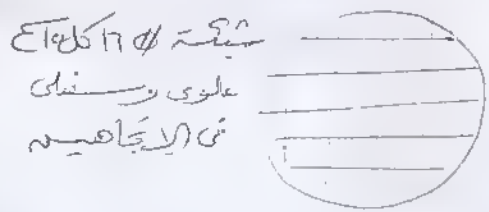 شبكة ϕ ١٦ كل ١٥ سم
علوى وسفلى
فى الاتجاهين